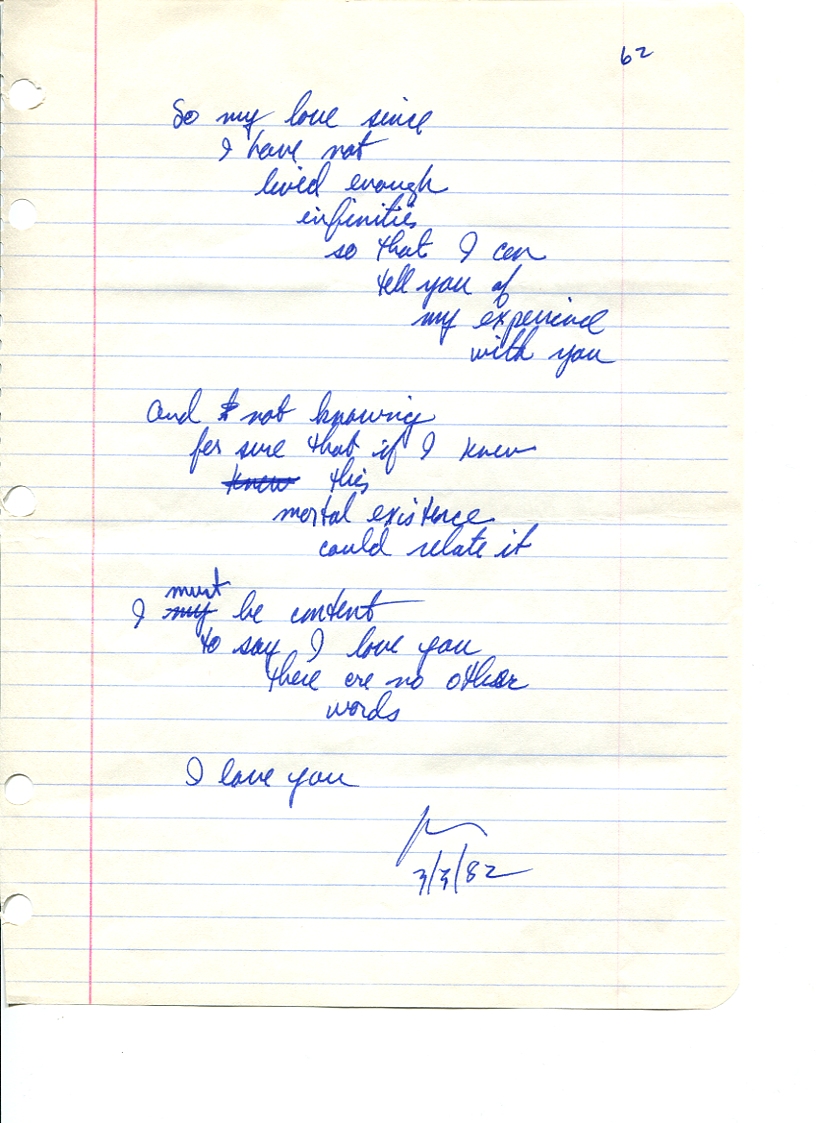 62
So my love since
I have not
lived enough
infinities
so that I can
tell you of
my experience
with you
and not knowing
for sure that if I knew
knew this
mortal existence
could relate it
must
I my be content
to say I love you
there are no other
words
I love you
3/3/82